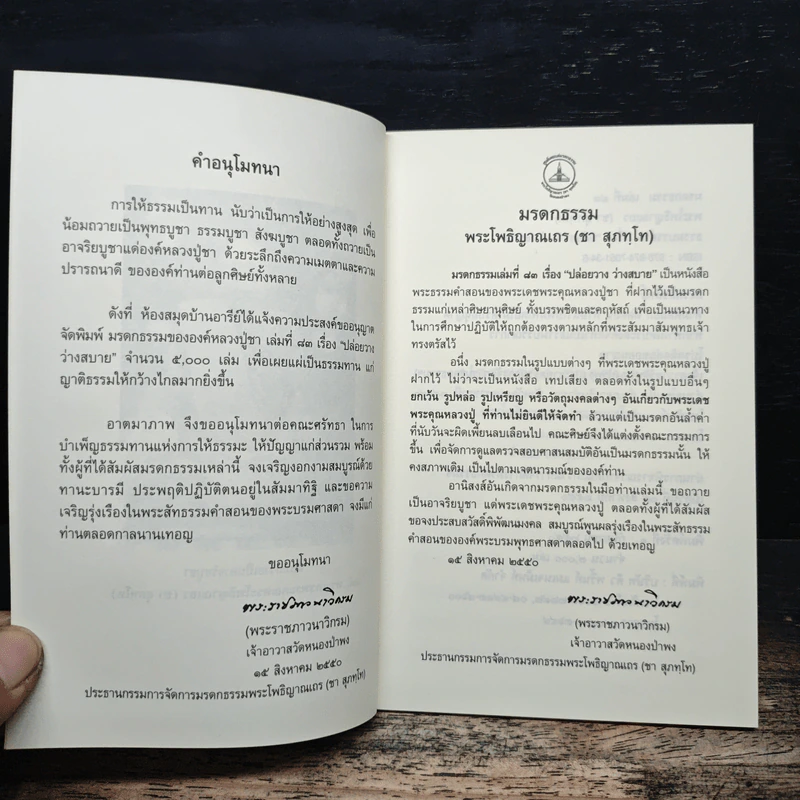 คำอนุโมทนา
การให้ธรรมเป็นทาน นับว่าเป็นการให้อย่างสูงสุด เพื่อ
น้อมถวายเป็นพุทธบูชา ธรรมบูชา สังฆบูชา ตลอดทั้งถวายเป็น
อาจริยบูชาแด่องค์หลวงปู่ชา ด้วยระลึกถึงความเมตตาและความ
ปรารถนาดี ขององค์ท่านต่อลูกศิษย์ทั้งหลาย
ดังที่ ห้องสมุดบ้านอารีย์ได้แจ้งความประสงค์ขออนุญาต
จัดพิมพ์ มรดกธรรมขององค์หลวงปู่ชา เล่มที่ ๘๓ เรื่อง “ปล่อยวาง
ว่างสบาย” จำนวน ๕,๐๐๐ เล่ม เพื่อเผยแผ่เป็นธรรมทาน แก่
ญาติธรรมให้กว้างไกลมากยิ่งขึ้น
อาตมาภาพ จึงขออนุโมทนาต่อคณะศรัทธา ในการ
บำเพ็ญธรรมทานแห่งการให้ธรรมะ ให้ปัญญาแก่ส่วนรวม พร้อม
ทั้งผู้ที่ได้สัมผัสมรดกธรรมเหล่านี้ จงเจริญงอกงามสมบูรณ์ด้วย
ทานะบารมี ประพฤติปฏิบัติตนอยู่ในสัมมาทิฐิ และขอความ
เจริญรุ่งเรืองในพระสัทธรรมคำสอนของพระบรมศาสดา จงมีแก่
ท่านตลอดกาลนานเทอญ
ขออนุโมทนา
(พระราชภาวนาวิกรม)
เจ้าอาวาสวัดหนองป่าพง
๑๕ สิงหาคม ๒๕๕๐
ประธานกรรมการจัดการมรดกธรรมพระโพธิญาณเถร (ชา สุภทฺโท)
มรดกธรรม
พระโพธิญาณเถร (ชา สุภทฺโท)
มรดกธรรมเล่มที่ ๘๓ เรื่อง “ปล่อยวาง ว่างสบาย” เป็นหนังสือ
พระธรรมคำสอนของพระเดชพระคุณหลวงปู่ชา ที่ฝากไว้เป็นมรดก
ธรรมแก่เหล่าศิษยานุศิษย์ ทั้งบรรพชิตและคฤหัสถ์ เพื่อเป็นแนวทาง
ในการศึกษาปฏิบัติให้ถูกต้องตรงตามหลักที่พระสัมมาสัมพุทธเจ้า
ทรงตรัสไว้
อนึ่ง มรดกธรรมในรูปแบบต่างๆ ที่พระเดชพระคุณหลวงปู่
ฝากไว้ ไม่ว่าจะเป็นหนังสือ เทปเสียง ตลอดทั้งในรูปแบบอื่นๆ
ยกเว้น รูปหล่อ รูปเหรียญ หรือวัตถุมงคลต่างๆ อันเกี่ยวกับพระเดช
พระคุณหลวงปู่ ที่ท่านไม่ยินดีให้จัดทำ ล้วนแต่เป็นมรดกอันล้ำค่า
ที่นับวันจะผิดเพี้ยนลบเลือนไป คณะศิษย์จึงได้แต่งตั้งคณะกรรมการ
ขึ้น เพื่อจัดการดูแลตรวจสอบศาสนสมบัติอันเป็นมรดกธรรมนั้น ให้
คงสภาพเดิม เป็นไปตามเจตนารมณ์ขององค์ท่าน
อานิสงส์อันเกิดจากมรดกธรรมในมือท่านเล่มนี้ ขอถวาย
เป็นอาจริยบูชา แด่พระเดชพระคุณหลวงปู่ ตลอดทั้งผู้ที่ได้สัมผัส
ขอจงประสบสวัสดิ์พิพัฒนมงคล สมบูรณ์พูนผลรุ่งเรืองในพระสัทธรรม
คำสอนขององค์พระบรมพุทธศาสดาตลอดไป ด้วยเทอญ
๑๕ สิงหาคม ๒๕๕๐
(พระราชภาวนาวิกรม)
เจ้าอาวาสวัดหนองป่าพง
ประธานกรรมการจัดการมรดกธรรมพระโพธิญาณเถร (ชา สุภทฺโท)